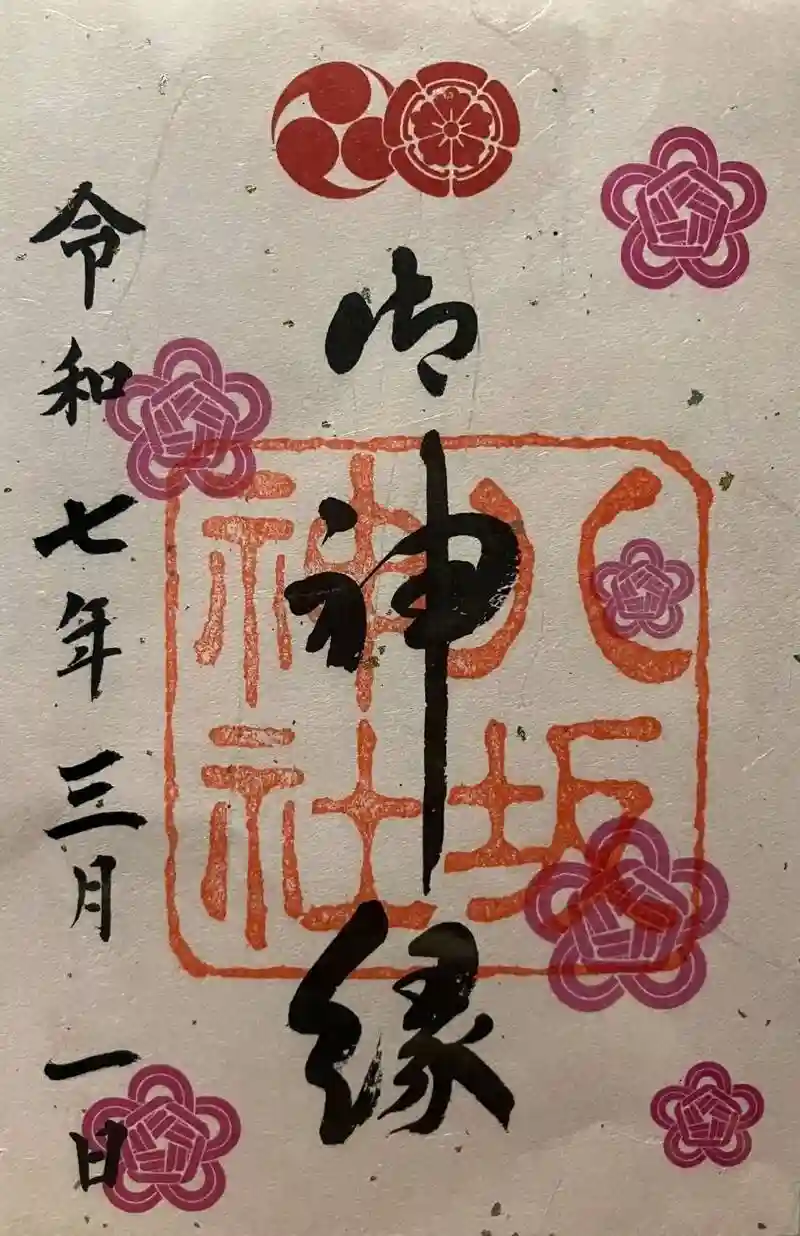 御神縁
八坂
神社
令和七年三月一日